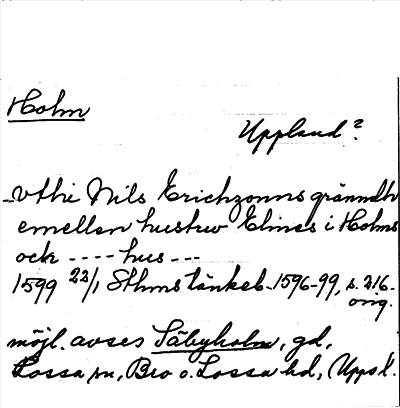 Holm
Uppland?
- vthi Nils Erichzonns gränndh
emellan hustrw Elines i Holms
ock - - - - hus - - -
1599 23/1 Sthms tänkeb. 1596-99, s. 216.
orig.
möjl. avses Säbyholm, gd,
Lossa sn, Bro o. Lossa hd, Upps l.